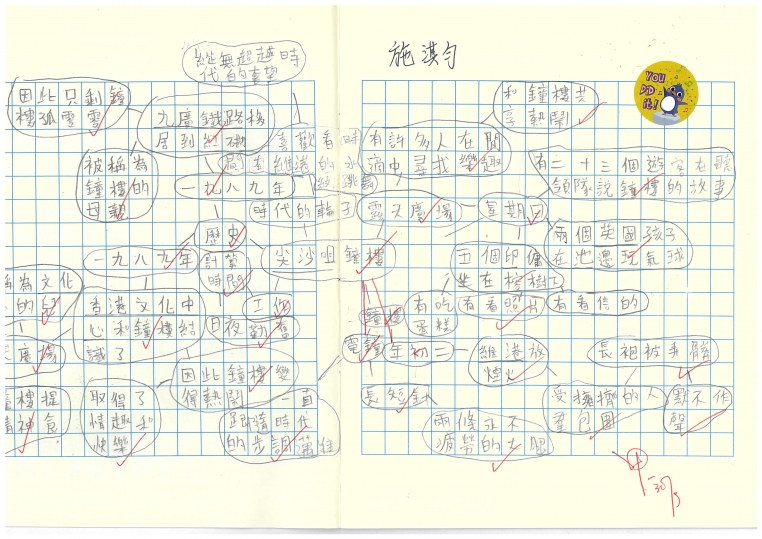 縱無超越時
代的奢望
施淇勻
YOU
DID
it!
因此只剩鐘
樓孤零零
九廣鐵路移
居到紅磡
喜歡看時
和鐘樓共
享熱鬧
有許多人在鬧
市中尋找樂趣
有二十三個遊客在聽
領隊說鐘樓的故事
被稱為
鐘樓的
母親
一九八九年
時代的輪子
露天廣場
星期日
兩個英國孩子
在池邊玩氣球
歷史
計算
時間
一九八九年
尖沙咀鐘樓
五個印傭
坐在棕樹下
稱為文化
香港文化中
心和鐘樓結
識了
工作
日夜勤奮
鐘樓
有吃
蛋糕
有看照片
有看信的
廣場
電鐘
年初二
維港放
煙火
因此鐘樓變
得熱鬧
一直
跟隨時代
的步調邁進
長短針
受擁擠的人
羣包圍
默不作
聲
樓提
取得了
情趣和
快樂
精神食
兩條永不
疲勞的大腿